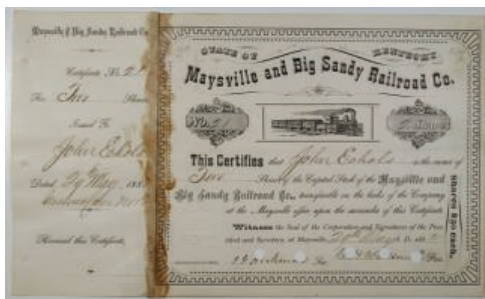 Maysville & Big Sandy Railroad Co.
Certificate No. 21
For Two Shares
Issued To
John Echols
Dated 29 May 188
Received this Certificate,
STATE OF KENTUCKY
Maysville and Big Sandy Railroad Co.
No. 21
2 Shares
This Certifies that John Echols is the owner of
Two Shares of the Capital Stock of the Maysville and
Big Sandy Railroad Co., transferable on the books of the Company
at the Maysville office upon the surrender of this Certificate.
Witness the Seal of the Corporation and Signatures of the Pres-
ident and Secretary, at Maysville, 29 May A.D. 188
Sec. Pres.
Shares $50 each.